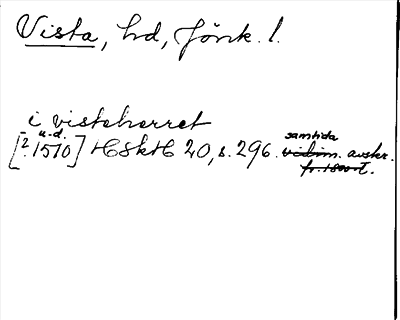 Vista, hd, Jönk. l.
i vistehærret
u.d.
[2. 1510] HSkH 20, s. 296. samtida vidim. avskr.
fr. 1800-t.